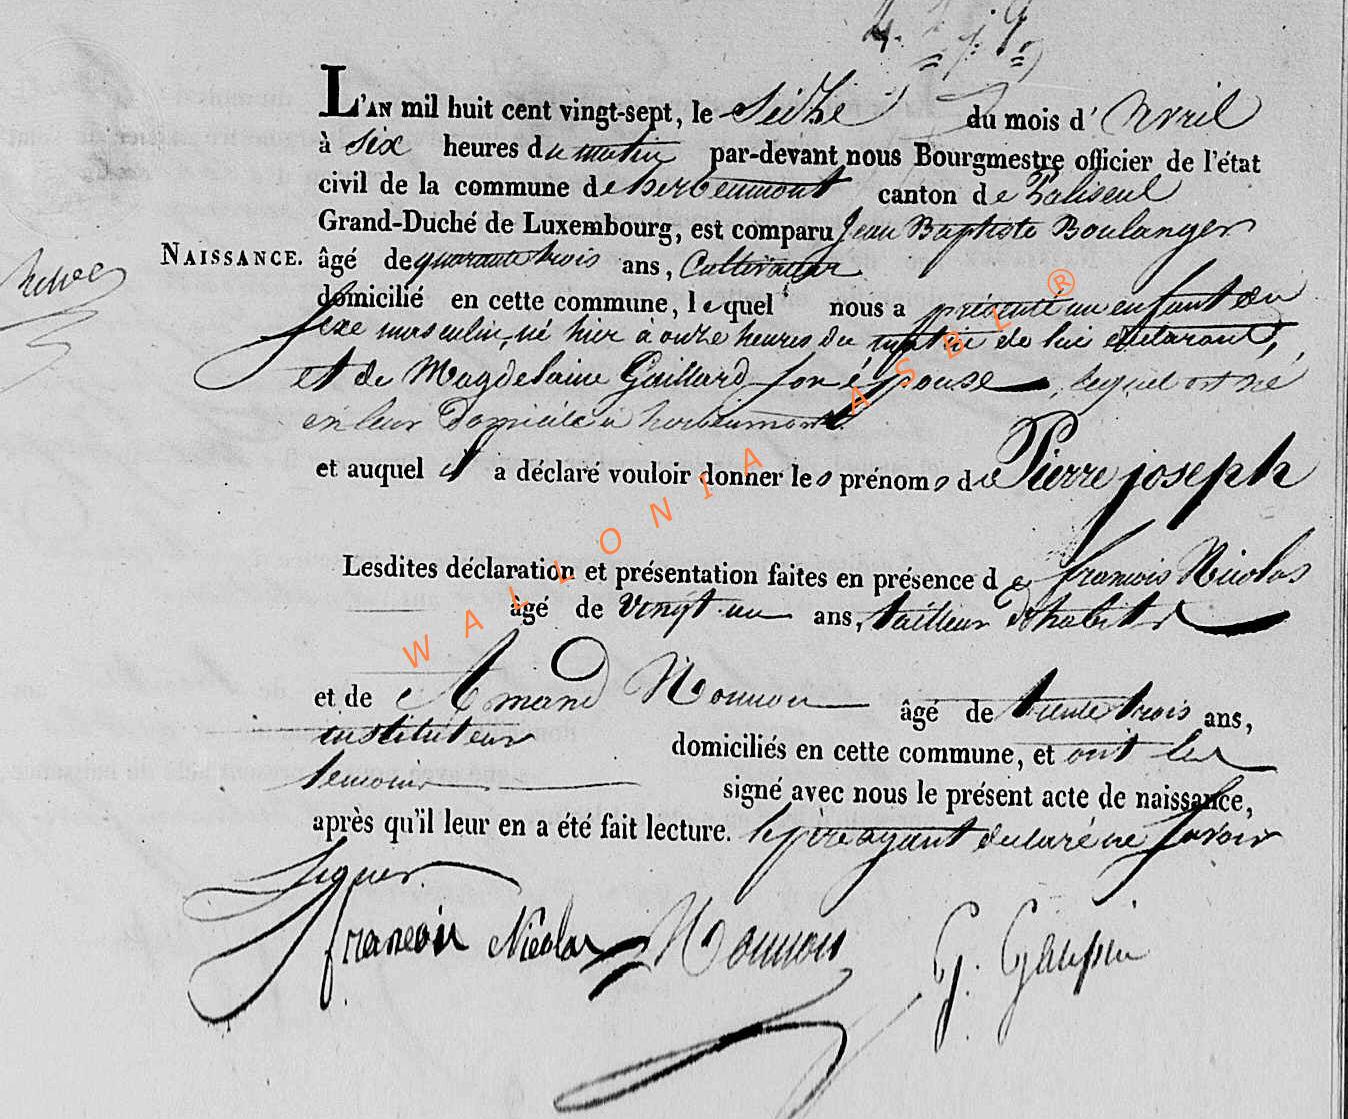 L'AN mil huit cent vingt-sept, le Seidze du mois d'Avril
à six heures du matin par-devant nous Bourgmestre officier de l'état
civil de la commune de herbeumont canton de Paliseul
Grand-Duché de Luxembourg, est comparu Jean Baptiste Boulanger
NAISSANCE. âgé de quarante trois ans, Cultivateur
domicilié en cette commune, lequel nous a présenté un enfant du
sexe masculin, né hier à onze heures du matin de lui déclarant,
et de Magdelaine Gaillard son épouse, lequel est né
en leur domicile à herbeumont
et auquel il a déclaré vouloir donner les prénoms de Pierre joseph
Lesdites déclaration et présentation faites en présence de francois Nicolas
âgé de vingt un ans, tailleur d'habits
et de Amand Nonnon âgé de trente trois ans,
instituteur domiciliés en cette commune, et ont les
temoins signé avec nous le présent acte de naissance,
après qu'il leur en a été fait lecture. le pere ayant declaré ne savoir
signer
francois Nicolas Nonnon G.
WALLONIA ASBL ®